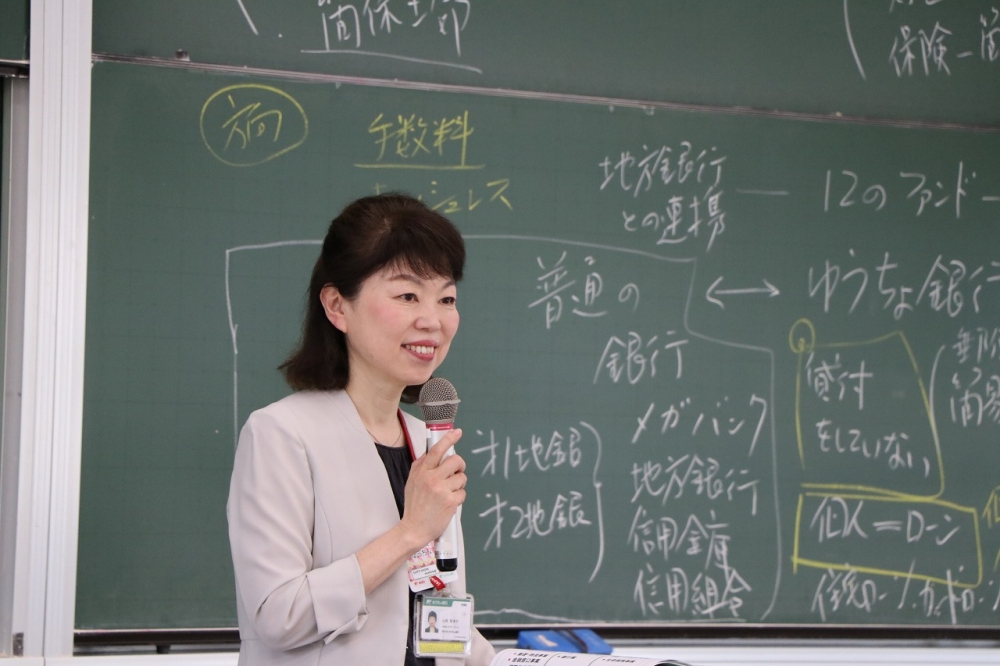 簡保主部
保険一簡
方向
手数料
シュレス
地方銀行
との連携
12のファンドー
普通の
銀行
ゆうちょ銀行
貸付
をしていない
簡易
メガバンク
才1地銀
才2地銀
地方銀行
信用金庫
信用組合
個人=ローン